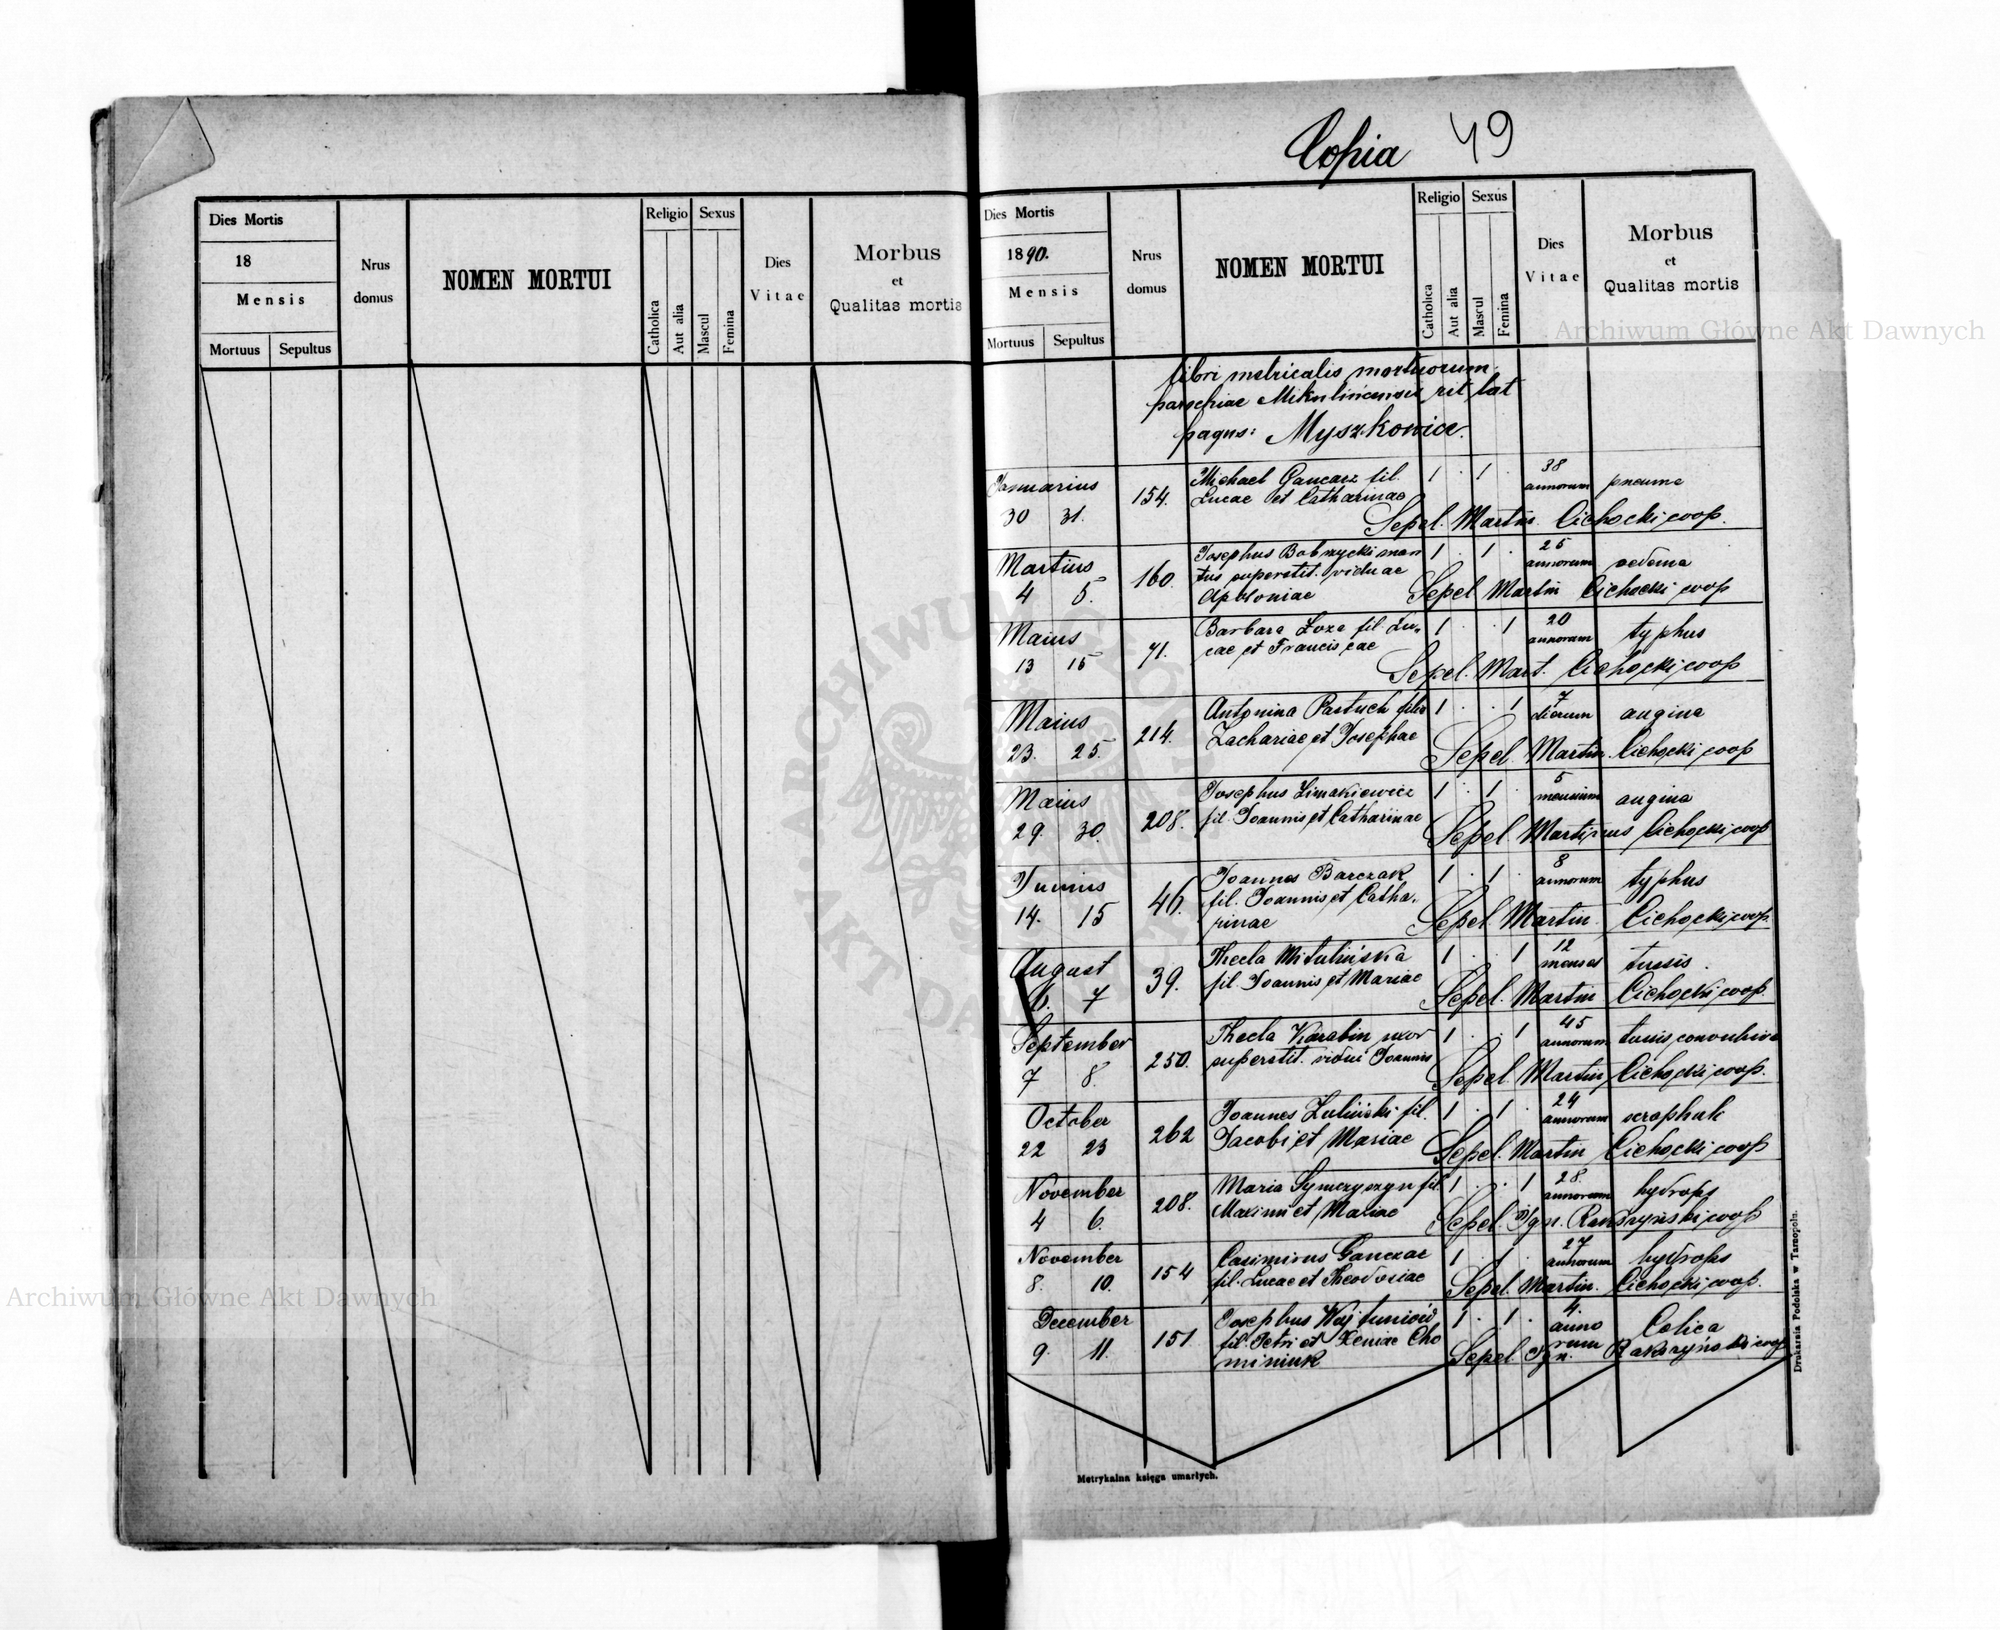 Copia 49
Dies Mortis
18
Mensis
Mortuus Sepultus
Nrus
domus
NOMEN MORTUI
Religio
Catholica
Aut alia
Sexus
Mascul
Femina
Dies
Vitae
Morbus
et
Qualitas mortis
Dies Mortis
1890.
Mensis
Mortuus Sepultus
Nrus
domus
NOMEN MORTUI
Religio
Catholica
Aut alia
Sexus
Mascul
Femina
Dies
Vitae
Morbus
et
Qualitas mortis
libri metricalis mortuorum
parochiae Mikulincensis rit lat
pagus: Myszkowice.
Januarius
30 31.
154.
Michael Gancarz fil.
Lucae et Catharinae
1 . 1 .
38
annorum
pneume
Sepel. Martin. Cichocki coop.
Martius
4 5.
160.
Josephus Bobrzycki mari
tus superstit. viduae
Apoloniae
1 . 1 .
25
annorum
oedema
Sepel Martin Cichocki coop
Maius
13 15
71.
Barbara Loza fil. Lu„
cae et Franciscae
1 . . 1
20
annorum
typhus
Sepel. Mart. Cichocki coop
Maius
23. 25.
214.
Antonina Pastuch filia
Zachariae et Josephae
1 . . 1
7
dierum
angina
Sepel Martin. Cichocki coop
Maius
29. 30.
208.
Josephus Limakiewicz
fil. Joannis et Catharinae
1 . 1 .
5
mensium
angina
Sepel Martinus Cichocki coop
Junius
14. 15
46.
Joannes Barczak
fil. Joannis et Catha„
rinae
1 . 1 .
8
annorum
typhus
Sepel Martin. Cichocki coop.
August
6. 7
39.
Thecla Mitulińska
fil. Joannis et Mariae
1 . . 1
12
menses
tussis.
Sepel. Martin Cichocki coop.
September
7 8.
250.
Thecla Karabin uxor
superstit. vidui Joannis
1 . . 1
45
annorum
tussis convulsiva
Sepel Martin Cichocki coop.
October
22 23
262
Joannes Zuliński fil.
Jacobi et Mariae
1 . 1 .
24
annorum
Sepel. Martin Cichocki coop
November
4 6.
208.
Maria fil
Maximi et Mariae
1 . . 1
28.
annorum
hydrops
Sepel. Ign. coop
November
8. 10.
154
Casimirus Ganczar
fil. Lucae et Theodosiae
1 . 1 .
27
annorum
hydrops
Sepel. Martin. Cichocki coop.
December
9. 11.
151
Josephus
fil. Petri et Xeniae Cho
miniuk
1 . 1 .
4.
anno
rum
Colica
Sepel Ign. coop
Metrykalna księga umarłych.
Drukarnia Podolska w Tarnopolu.
Archiwum Główne Akt Dawnych
Archiwum Główne Akt Dawnych